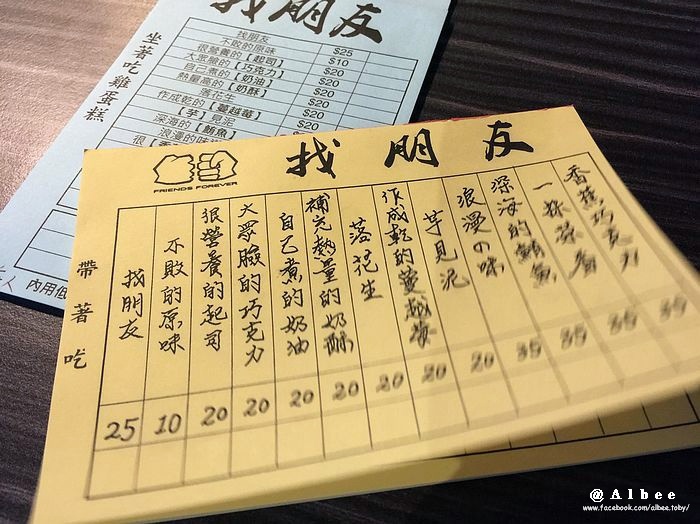 找朋友
坐著吃雞蛋糕
找朋友 $25
不敗的原味 $10
很營養的【起司】 $20
大眾臉的【巧克力】 $20
自己煮的【奶油】 $20
熱量高的【奶酥】 $20
落花生 $20
作成乾的【蔓越莓】 $20
【芋】見泥
深海的【鮪魚】
浪漫的味
很【香
內用低
人
找朋友
FRIENDS FOREVER
帶著吃
找朋友 25
不敗的原味 10
很營養的起司 20
大眾臉的巧克力 20
自己煮的奶油 20
補充熱量的奶酥 20
落花生 20
作成乾的蔓越莓 20
芋見泥 20
浪漫の味 20
深海的鮪魚 35
一級菜 35
香蕉巧克力 35
@Albee
www.facebook.com/albee.toby/